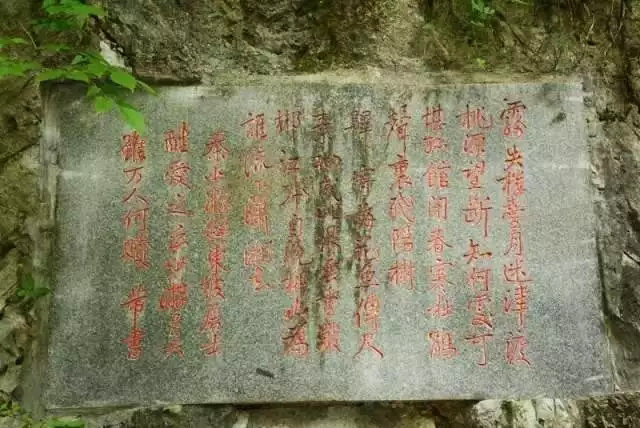 霧失樓臺月迷津渡
桃源望斷知何處可
堪孤館閉春寒杜鵑
聲裏殘陽樹
驛寄梅花魚傳尺
素砌成此恨無重數
郴江本自繞郴山為
誰流下瀟湘去
秦少游辞東坡居士
酷愛之云少游已矣
雖万人何贖 芾書